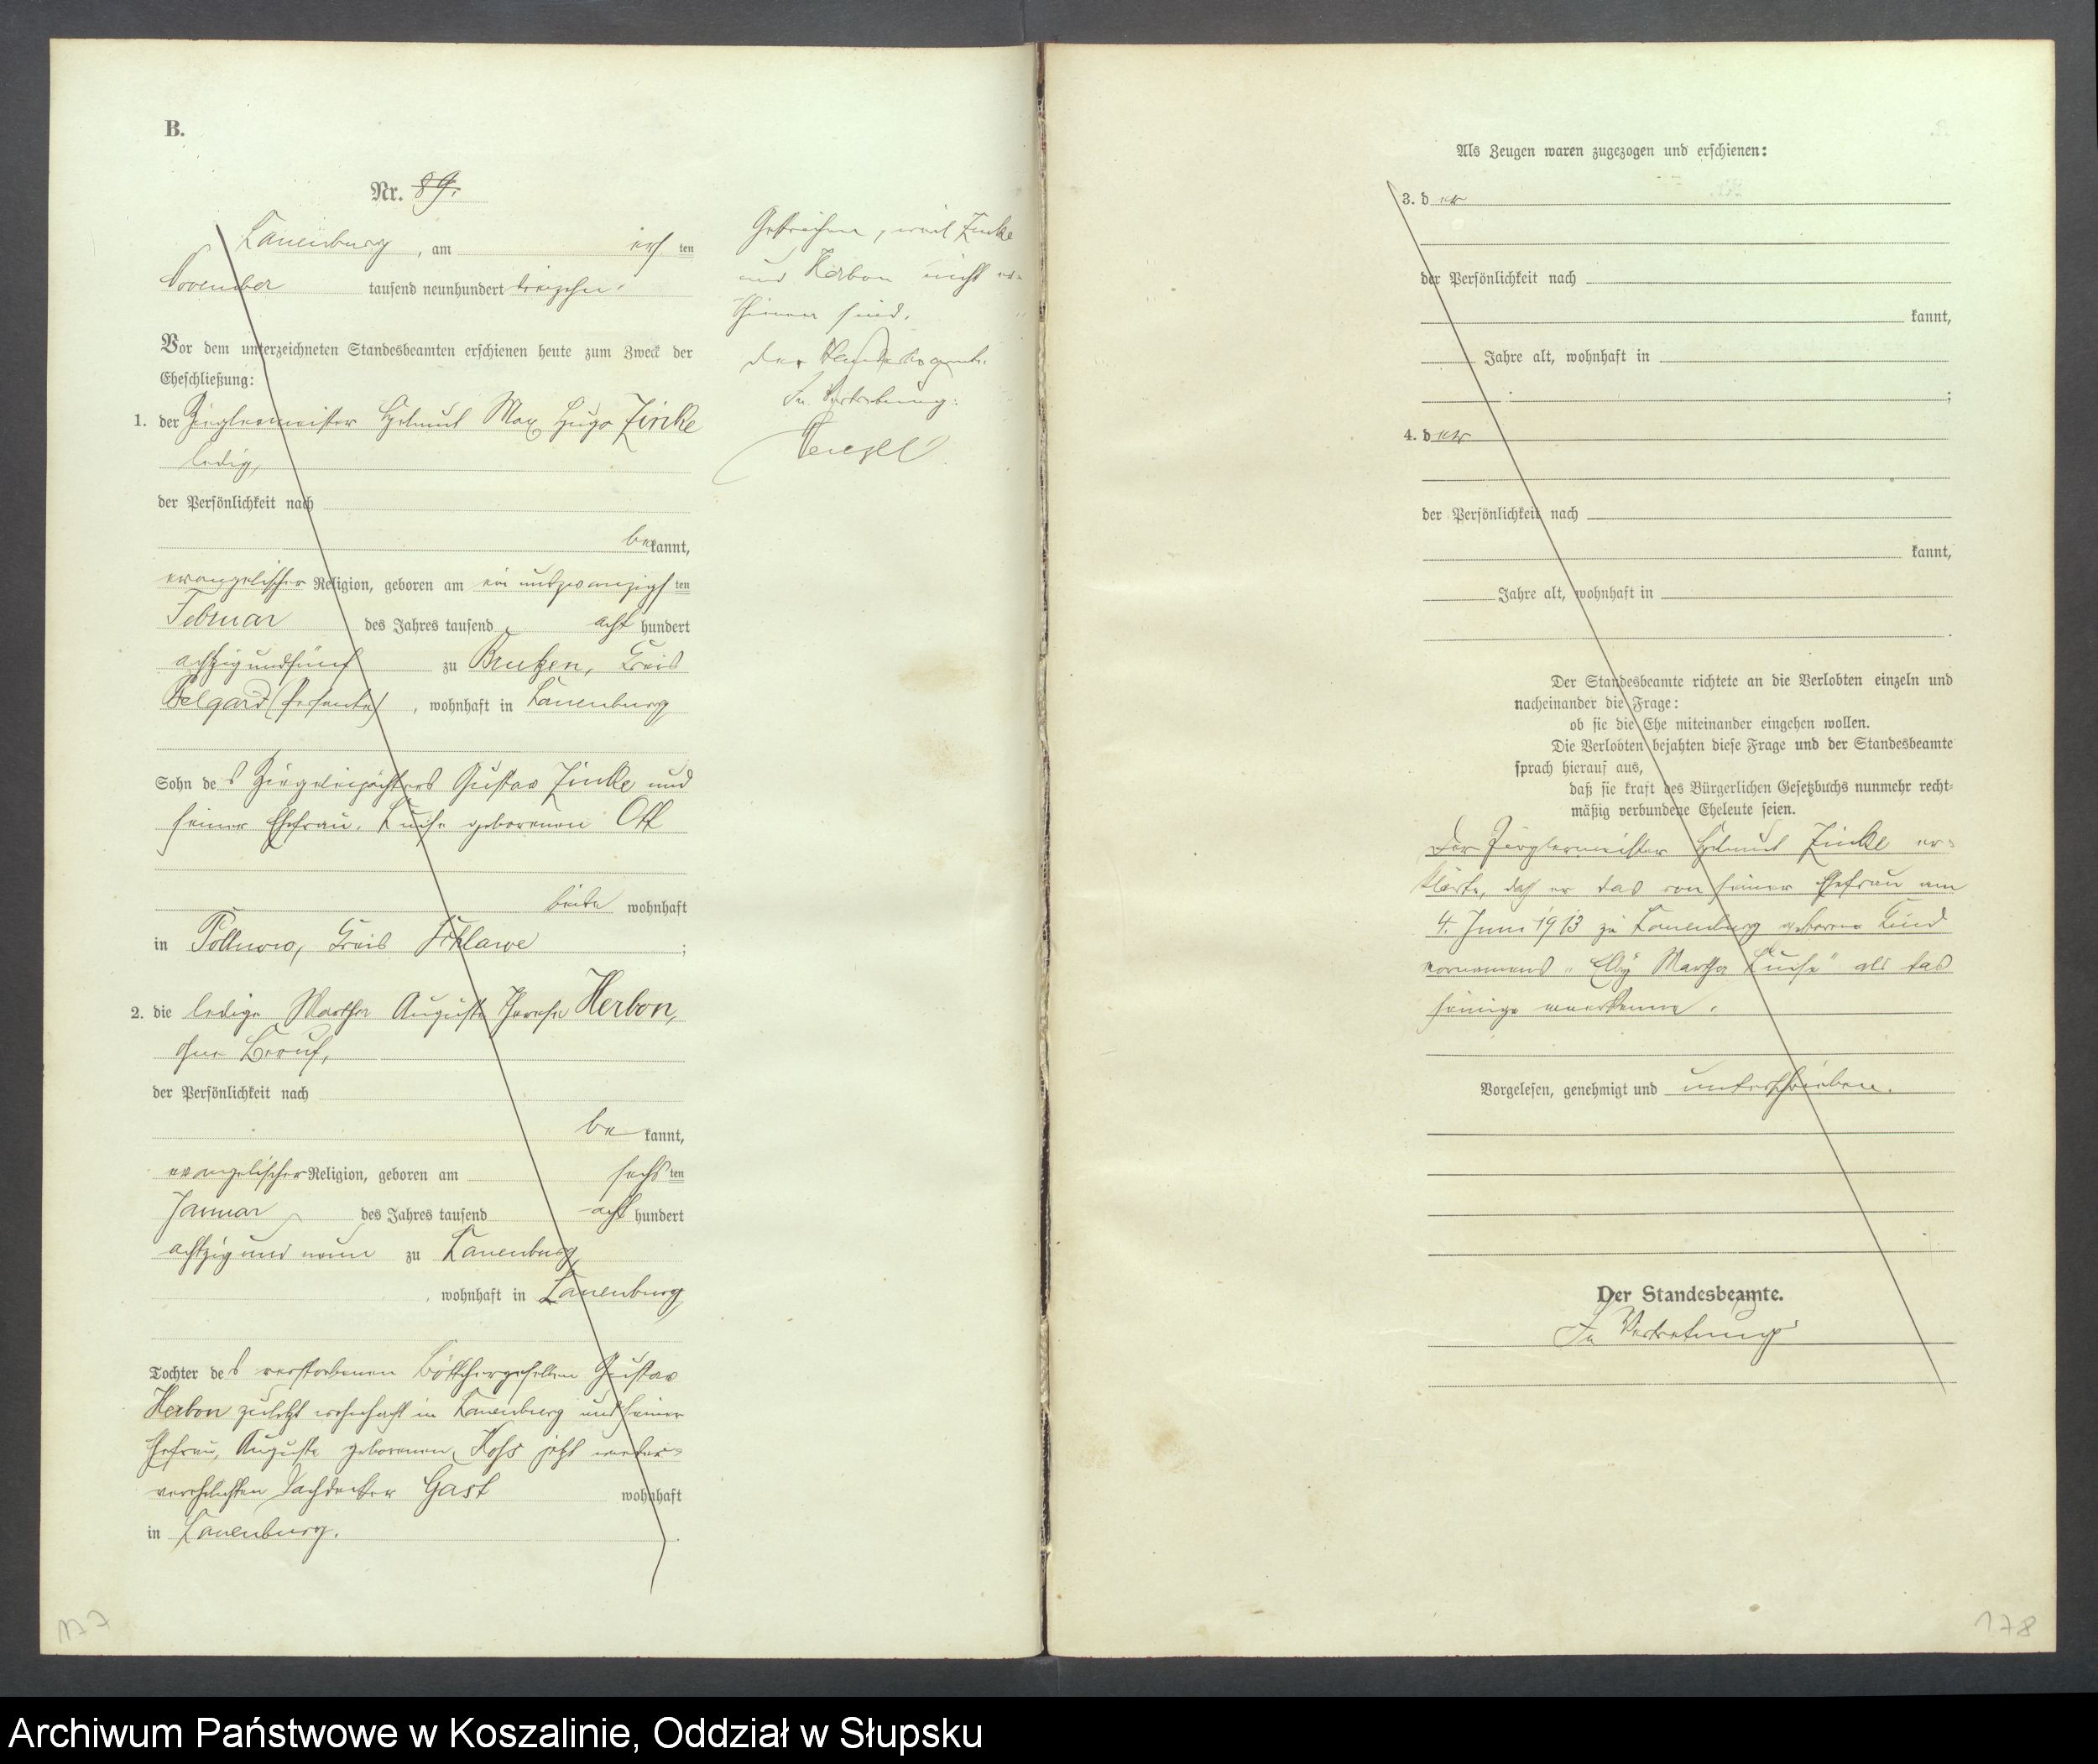 B.
Nr. 89.
Lauenburg, am ersten
November tausend neunhundert dreizehn.
Vor dem unterzeichneten Standesbeamten erschienen heute zum Zweck der
Eheschließung:
1. der Zieglermeister Helmut Max Hugo Zincke
ledig,
der Persönlichkeit nach
bekannt,
evangelischer Religion, geboren am ein undzwanzigsten
Februar des Jahres tausend acht hundert
achtzigundfünf zu Brutzen, Kreis
Belgard (Persante), wohnhaft in Lauenburg
Sohn des Ziegeleipächters Gustav Zincke und
seiner Ehefrau, Luise geborenen Ott
beide wohnhaft
in Pollnow, Kreis Schlawe;
2. die ledige Martha Auguste Therese Herbon,
ohne Beruf,
der Persönlichkeit nach
bekannt,
evangelischer Religion, geboren am sechsten
Januar des Jahres tausend acht hundert
achtzig und neun zu Lauenburg
, wohnhaft in Lauenburg
Tochter des verstorbenen Böttchergesellen Gustav
Herbon zuletzt wohnhaft in Lauenburg und seiner
Ehefrau, Auguste geborenen jetzt wieder-
verehelichten Dachdecker Gast wohnhaft
in Lauenburg.
Gestrichen, weil Zincke
und Herbon nicht er-
schienen sind.
Der Standesbeamte.
In Vertretung:
177
Als Zeugen waren zugezogen und erschienen:
3. der
der Persönlichkeit nach
kannt,
Jahre alt, wohnhaft in
;
4. der
der Persönlichkeit nach
kannt,
Jahre alt, wohnhaft in
.
Der Standesbeamte richtete an die Verlobten einzeln und
nacheinander die Frage:
ob sie die Ehe miteinander eingehen wollen.
Die Verlobten bejahten diese Frage und der Standesbeamte
sprach hierauf aus,
daß sie kraft des Bürgerlichen Gesetzbuchs nunmehr recht-
mäßig verbundene Eheleute seien.
Der Zieglermeister Helmut Zincke er-
klärte, daß er das von seiner Ehefrau am
4. Juni 1913 zu Lauenburg geborene Kind
vornamens „Elly Martha Luise" als das
seinige anerkenne.
Vorgelesen, genehmigt und unterschrieben.
Der Standesbeamte.
In Vertretung
178
Archiwum Państwowe w Koszalinie, Oddział w Słupsku